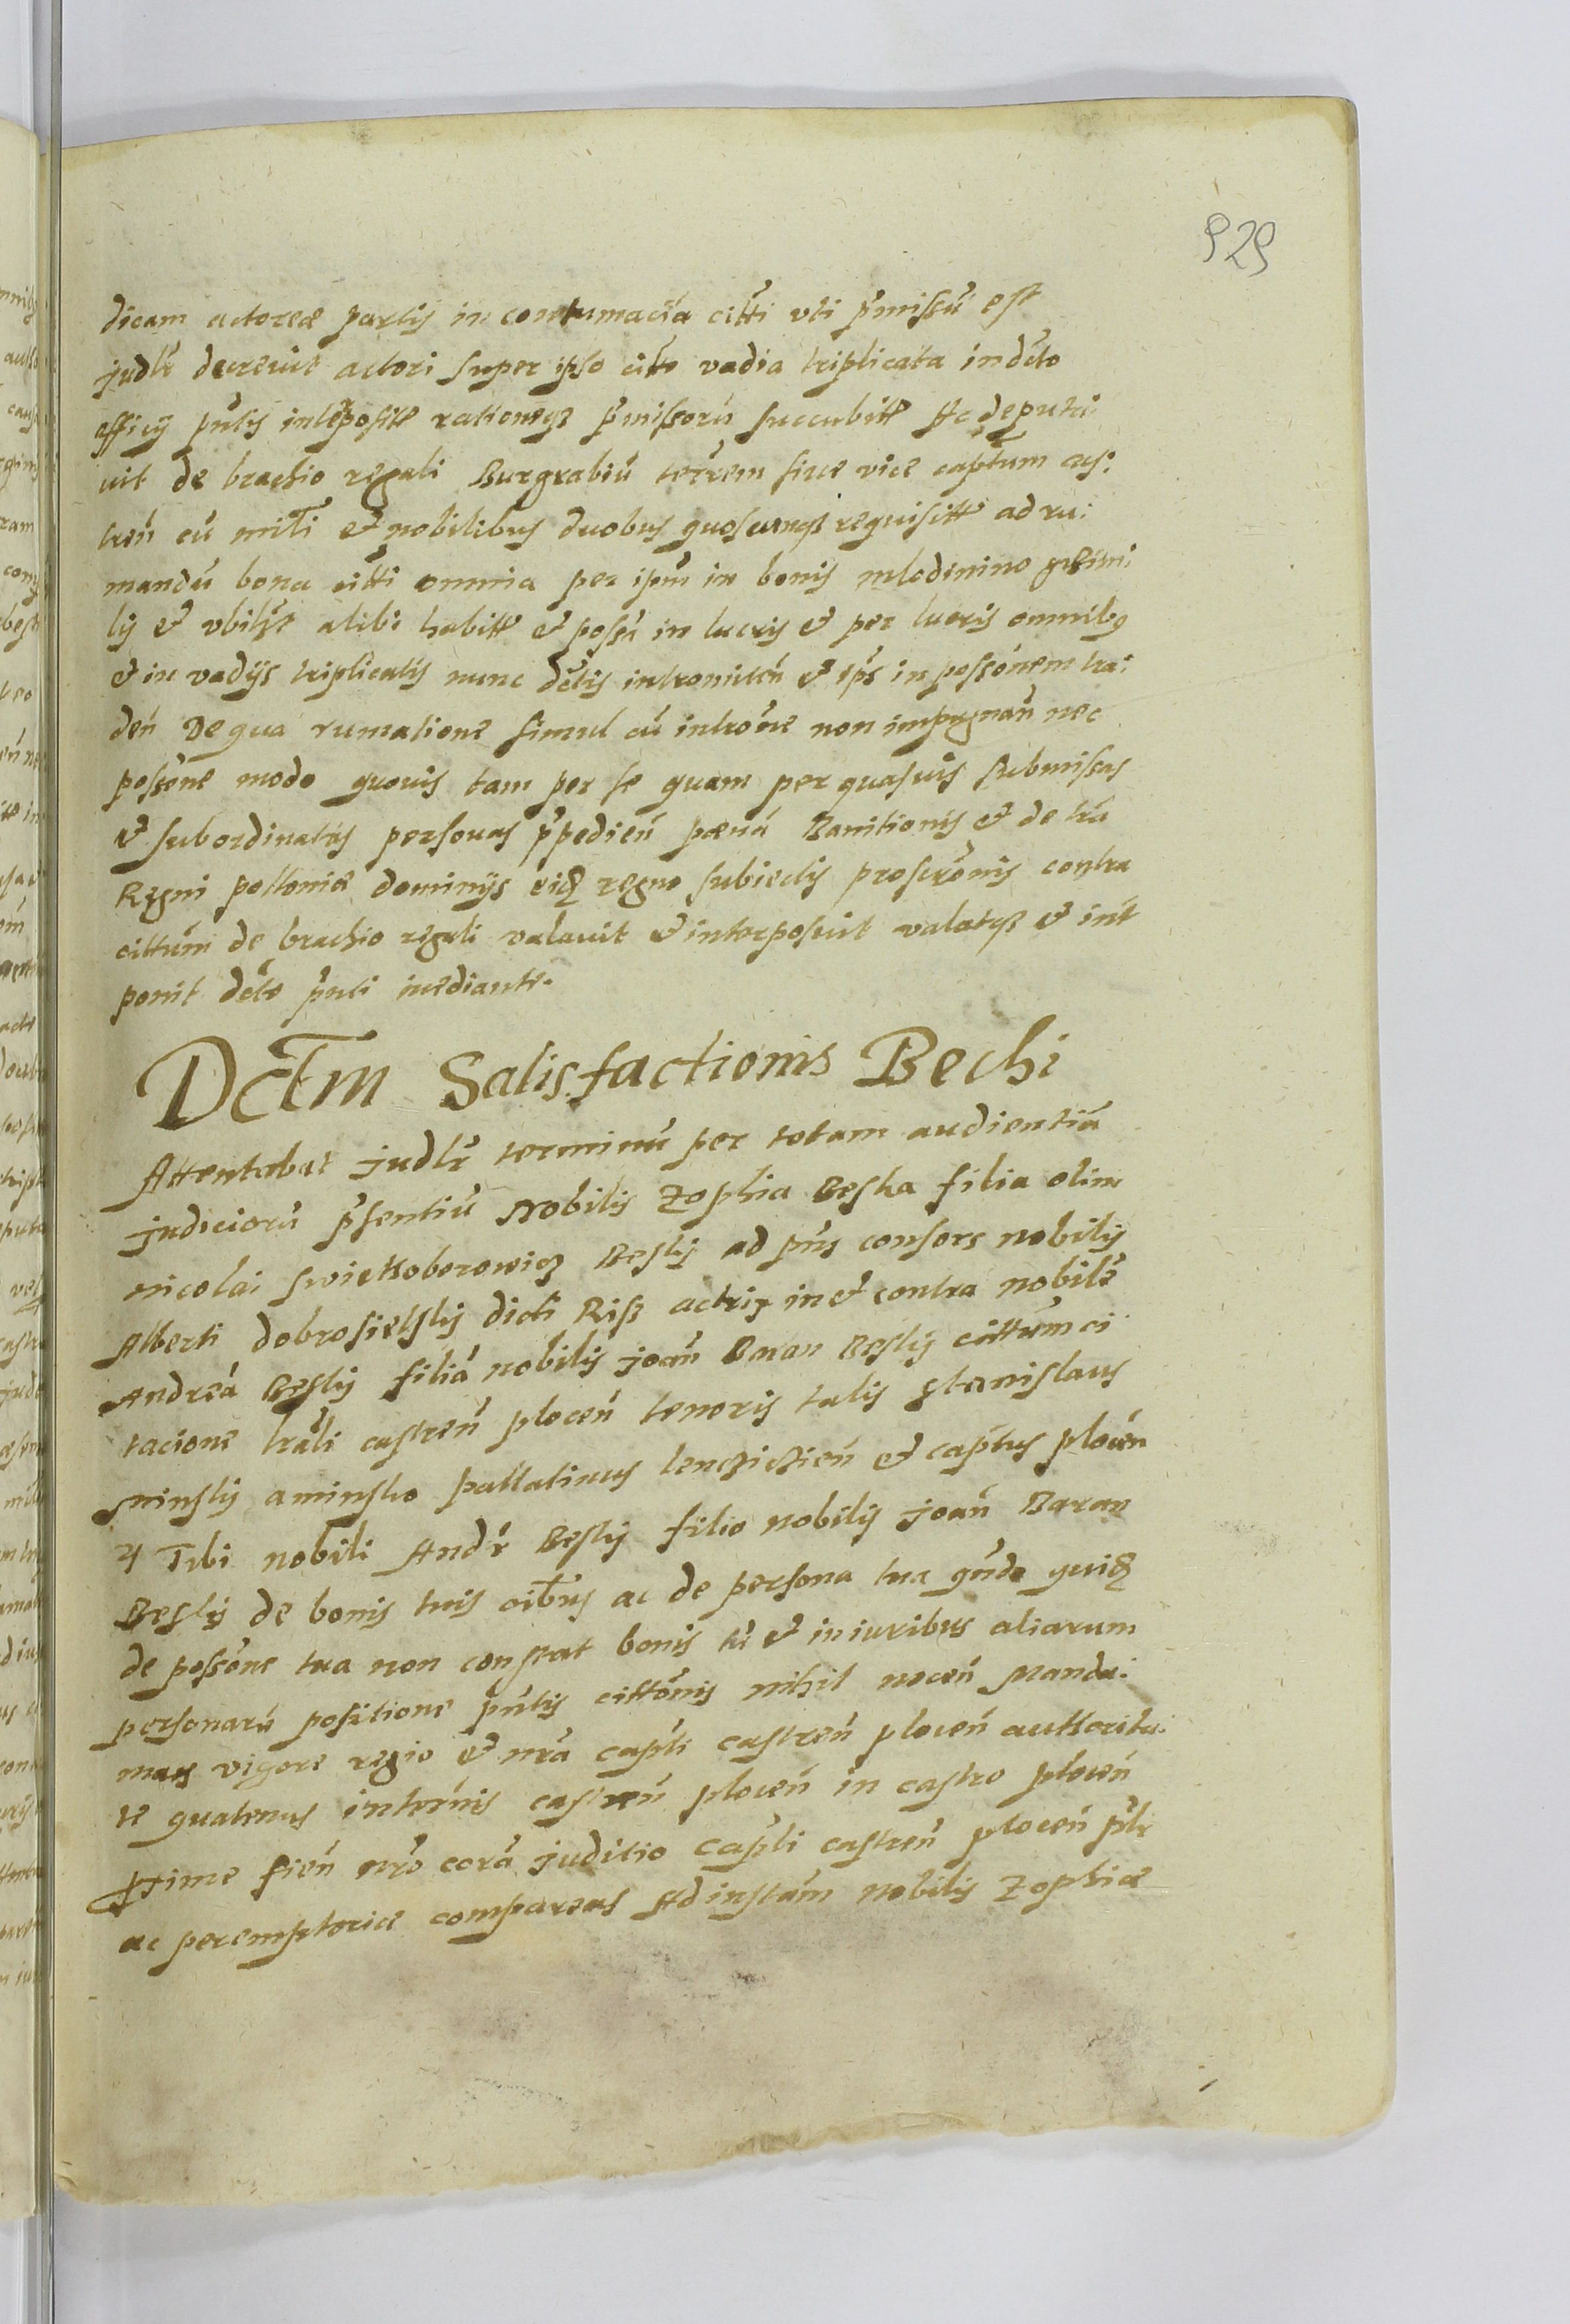 929
dicam actoreæ partis in contumaciā citti vti p̄missū est
judlr decreuit actori super ipso citto vadia triplicata in dcto
officij pn̄tis interposite rationeqz p̄missorū succubitt Ac deputa:
uit de brachio regali Burgrabiū terrem siue vice captum cas:
tren̄ cū mil̄i et nobilibus duobus quoscunqz requisitt ad ru:
mandū bona citti omnia per ipm̄ in bonis mlodinino
lij et vbilzt alibi habitt et possā in lucris et per lucris omnibq
et in vadijs triplicatis nunc dctis intromitten̄ et ips̄ in possōnem tra:
den̄ De qua rumatione simul cū introm̄e non impugnan̄ nec
possōne modo quouis tam per se quam per quasuis submissas
et subordinatas personas p̄pedien̄ pœnā Banitionis et de tr̄a
Regni polloniæ dominijs eidz regno subiectis proscrōnis contra
cittum de brachio regali valauit et interposuit valatqz et int̄
ponit dcto pn̄ti mediante.
Dctm Satisfactionis Beshi
Attentabat judlr terminū per totam audientiā
judiciorū p̄sentiū Nobilis Zophia Beska filia olim
nicolai swietkoborowicz Beskij ad pn̄s consors nobilis
Alberti dobrosielskij dicti Risz actrix in et contra nobilē
Andreā Beskij filiū nobilis joan̄ Baran Beskij cittum ci
tacione lrāli castren̄ plocen̄ tenoris talis stanislaus
minskij a minsko pallatinus lencziczien̄ et captus plocen̄
Tibi nobili Andr̄ Beskij filio nobilis joan̄ Baran
Beskij de bonis tuis oibus ac de persona tua qn̄do quidz
de possōne tua non constat bonis tn̄ et in iuribus aliarum
personarū positione pn̄tis cittōnis nihil nocen̄ Manda:
mus vigore regio et nr̄a capli castren̄ plocen̄ authorita:
te quatenus in ternis castren̄ plocen̄ in castro plocen̄
pxime fien̄ nr̄o corā juditio capli castren̄ plocen̄ plr
ac peremptorie compareas Ad instam nobilis Zophiæ